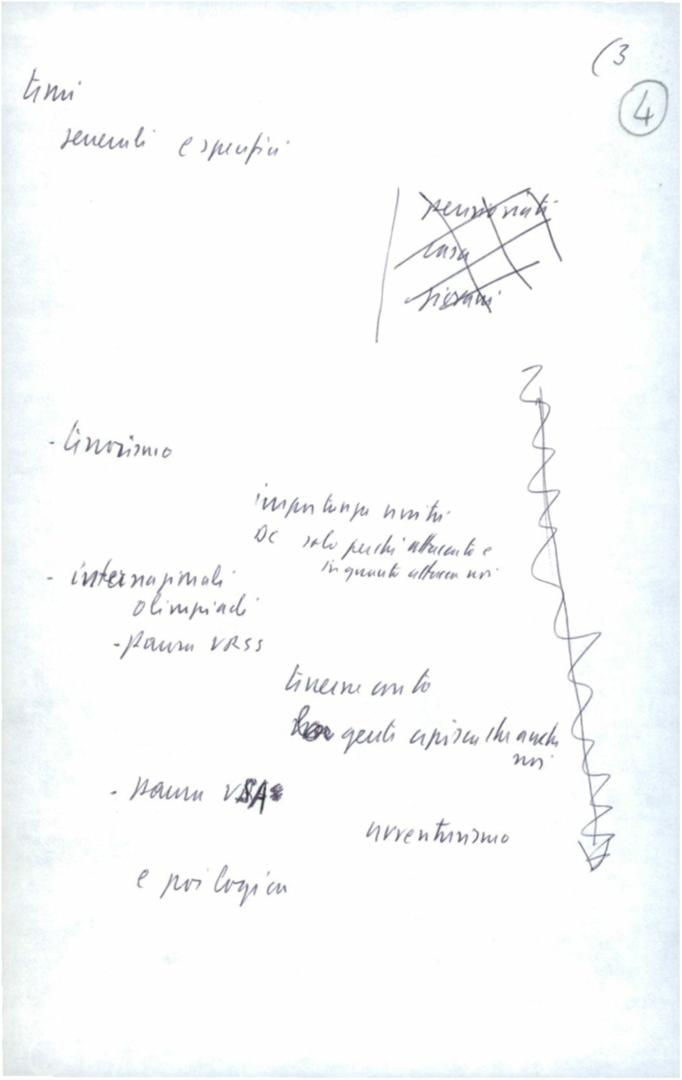 (3
4
temi
generali e specifici
pensionati
casa
giovani
- terrorismo
importanza nostri
DC solo perché attaccante e
in quanto attacca noi
- internazionali
olimpiadi
- paura URSS
tenerne conto
gente capisca che anche
noi
- paura USA
avventurismo
e poi logica